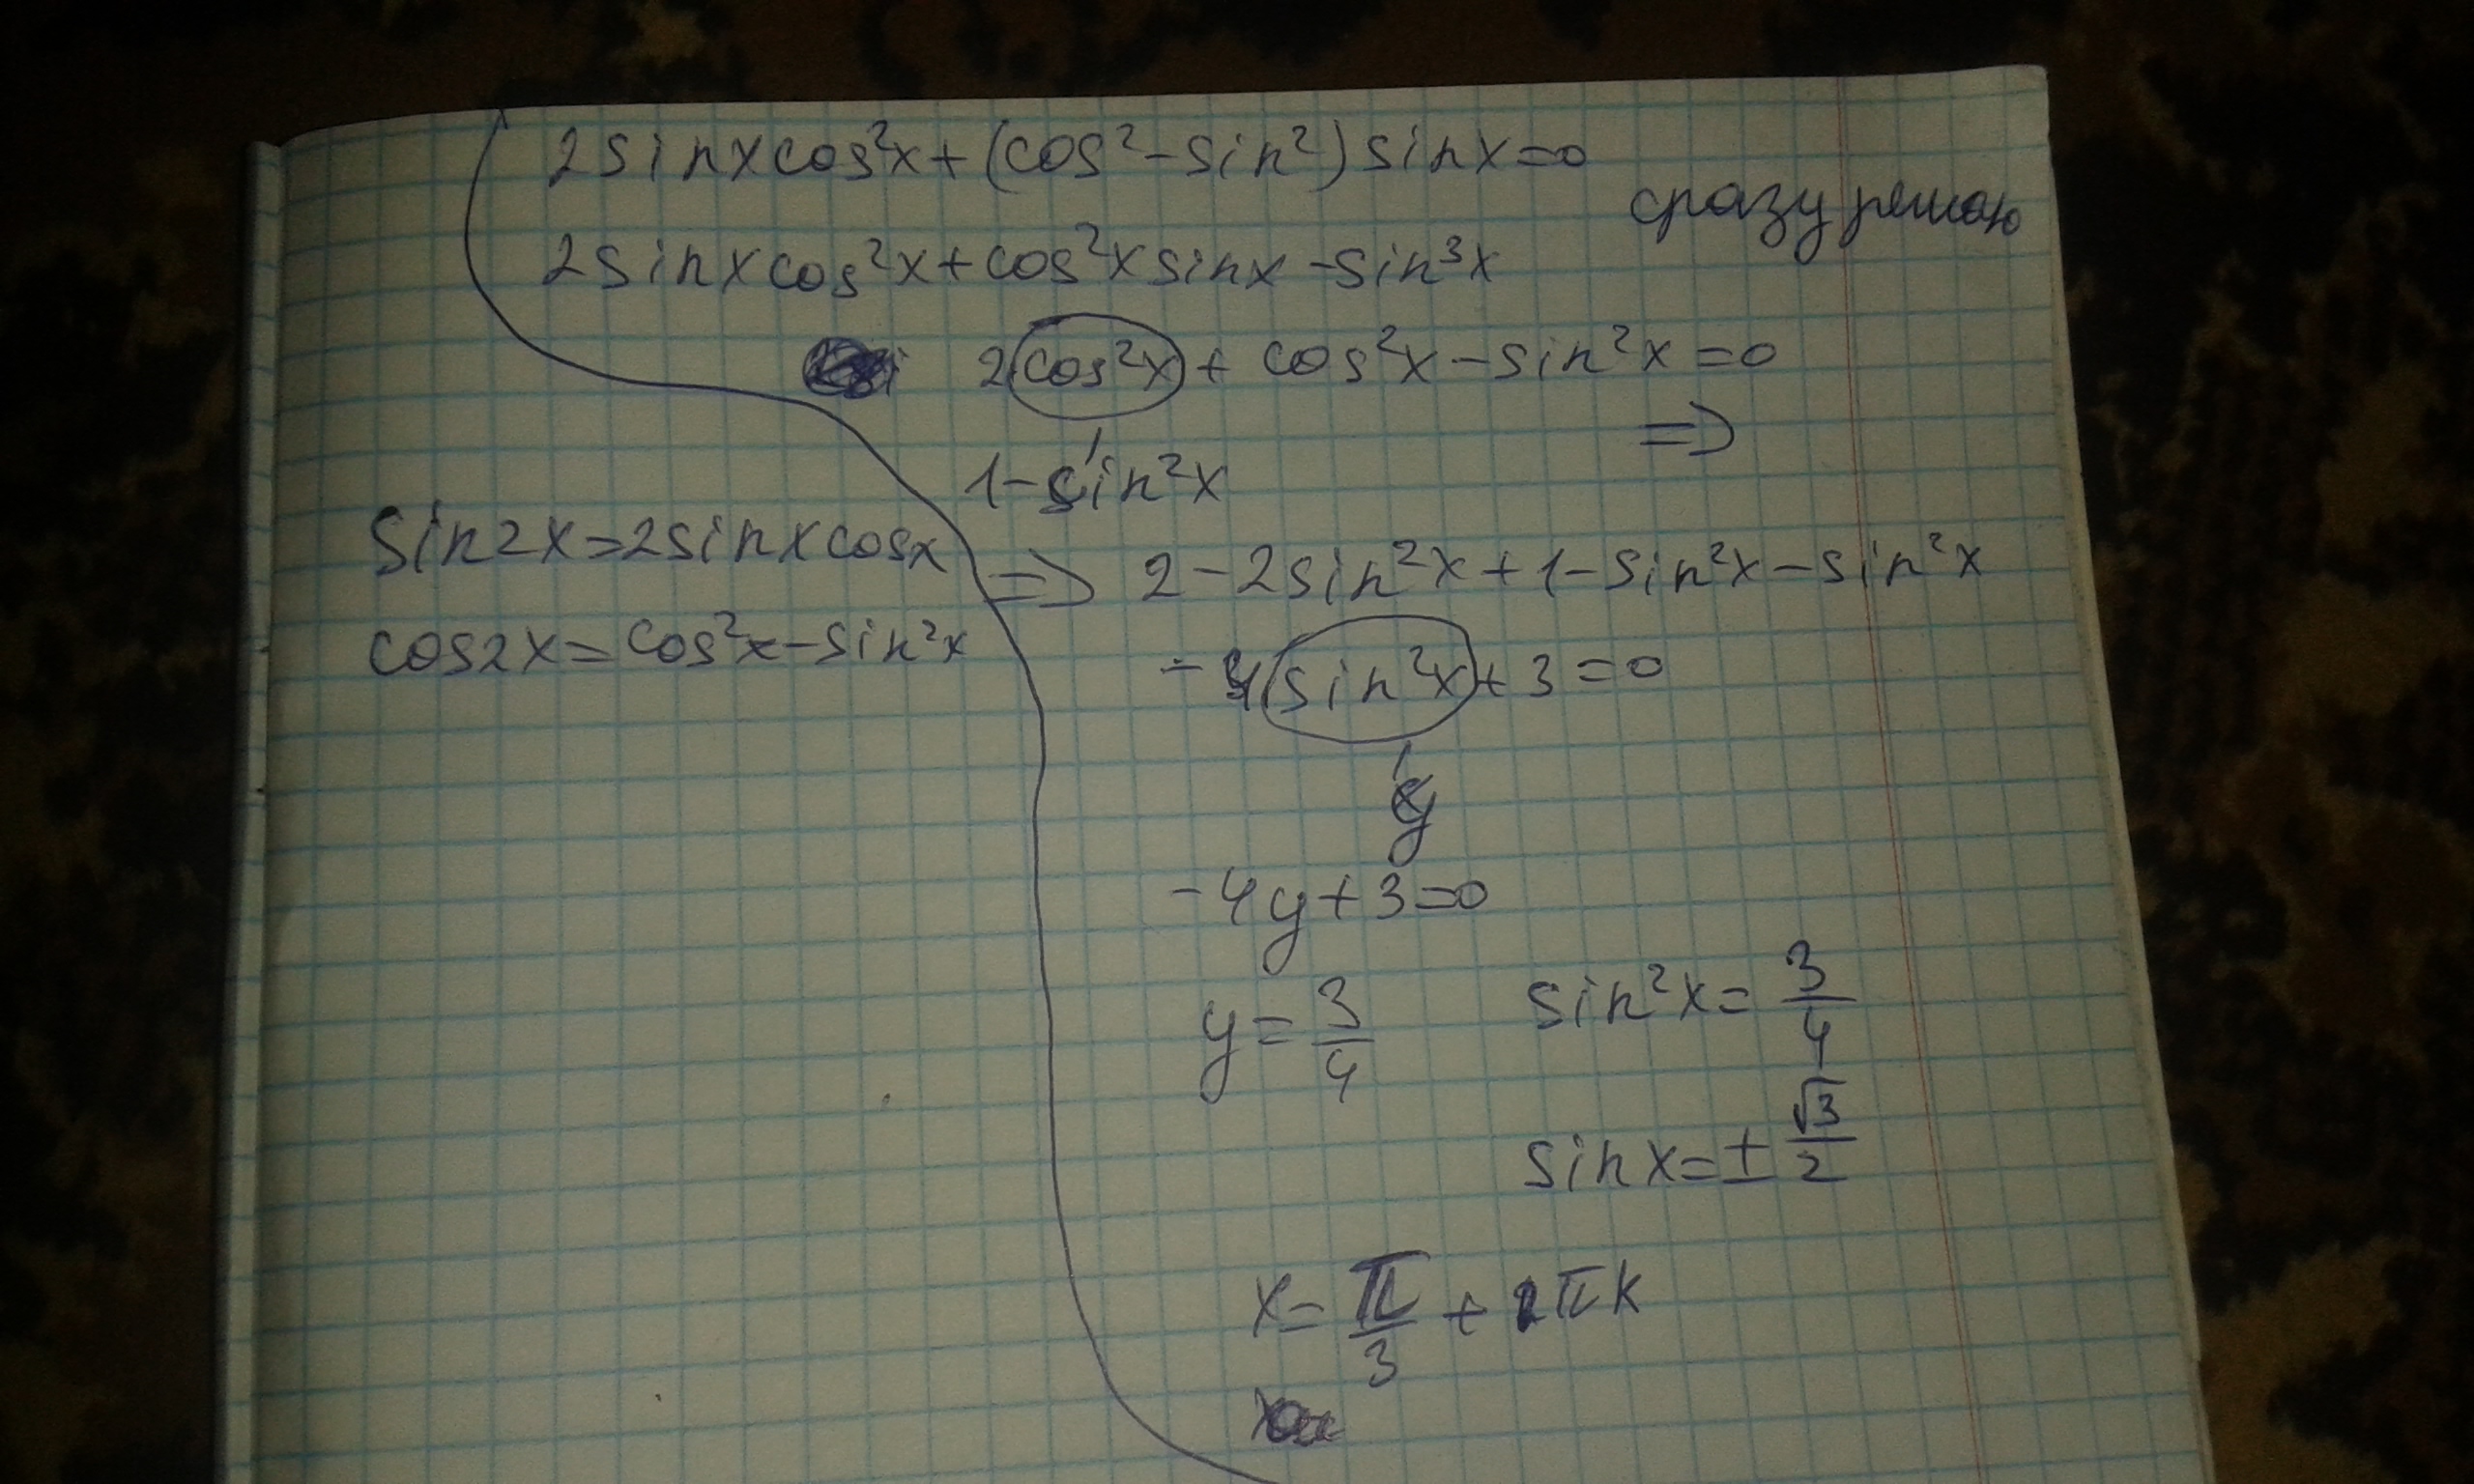 2sinxcos²x+(cos²-sin²)sinx=0
сразу решаю
2sinxcos²x+cos²xsinx-sin³x
2cos²x+cos²x-sin²x=0
=>
1-sin²x
sin2x=2sinxcosx
cos2x=cos²x-sin²x
=> 2-2sin²x+1-sin²x-sin²x
-4sin²x+3=0
y
-4y+3=0
y=3/4 sin²x=3/4
sinx=±√3/2
x=π/3+πk